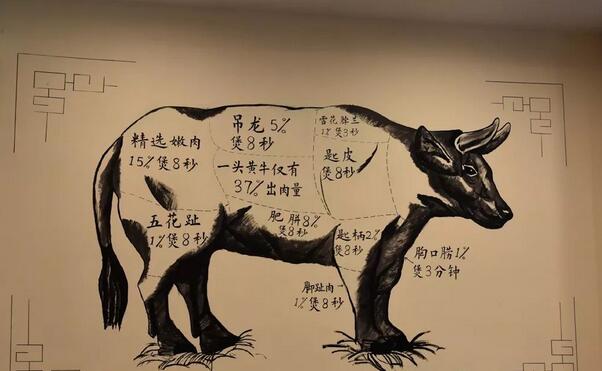 吊龙 5%
煲8秒
雪花脖兰
1% 煲8秒
精选嫩肉
15% 煲8秒
一头黄牛仅有
37% 出肉量
匙皮
煲8秒
五花趾
1% 煲8秒
肥胼8%
煲8秒
匙柄2%
煲8秒
胸口朥1%
煲3分钟
脚趾肉
1% 煲8秒